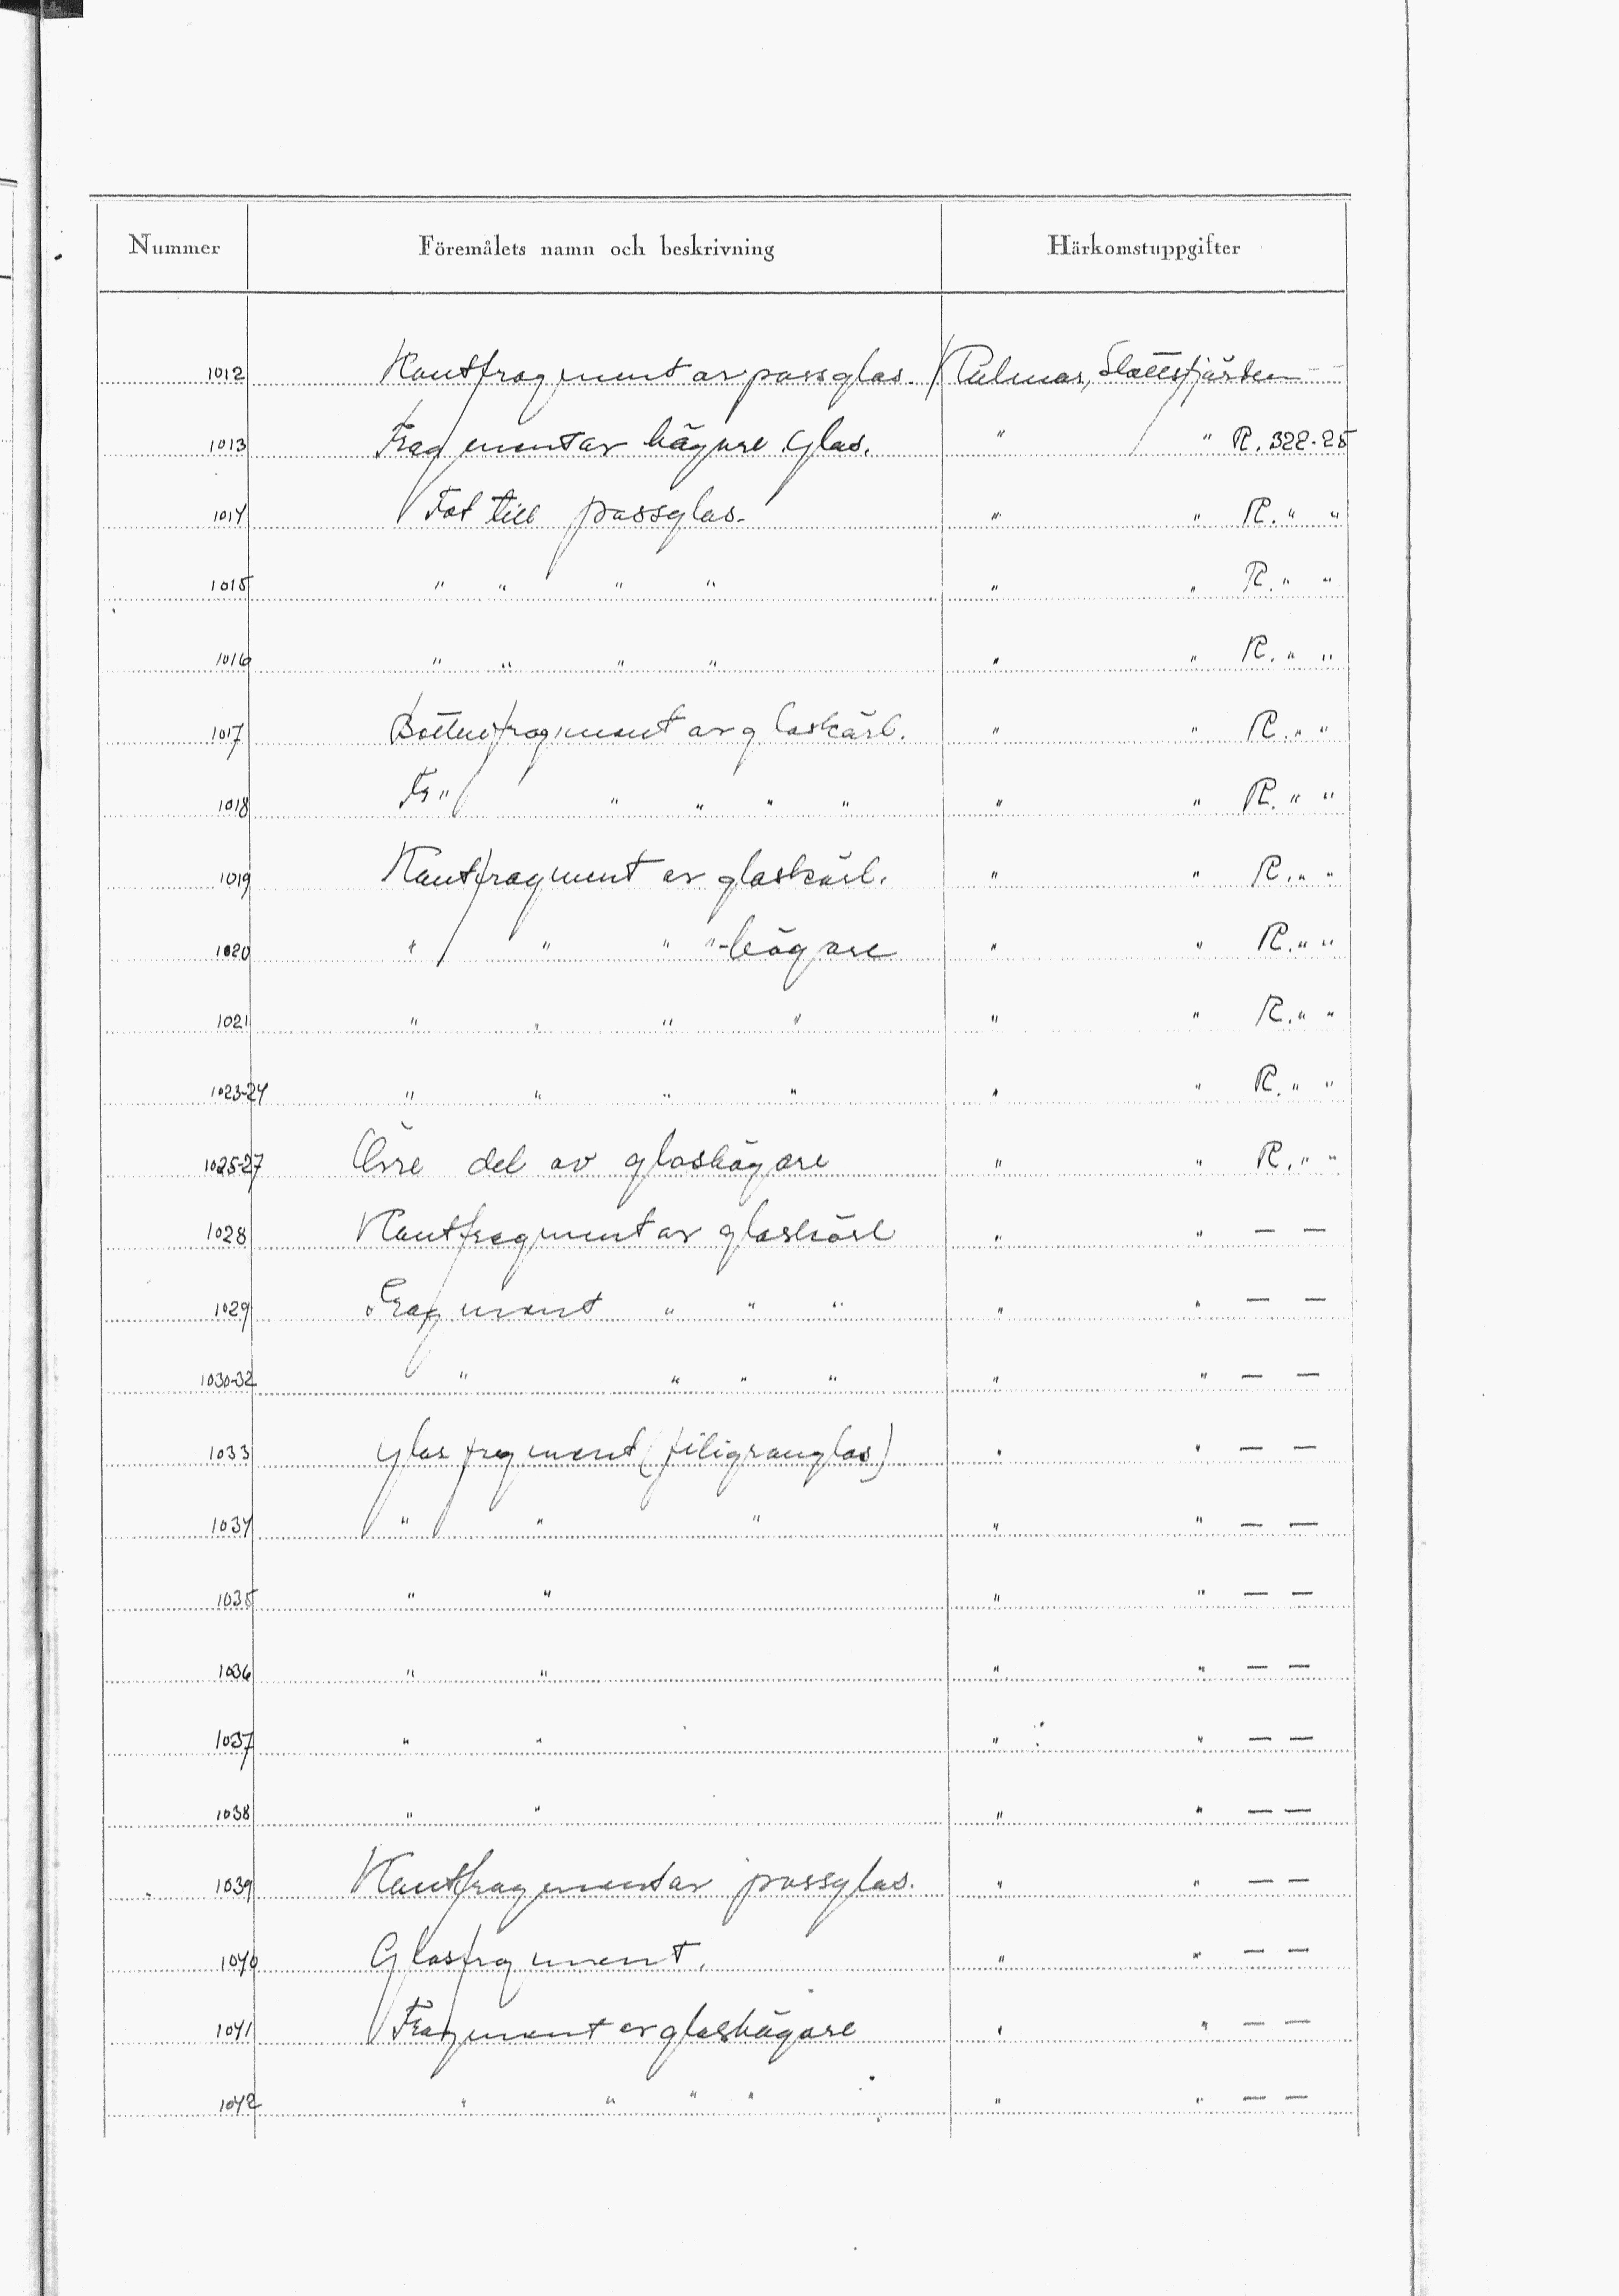 Nummer Föremålets namn och beskrivning Härkomstuppgifter
1012 Kantfragment av passglas. Kalmar, Slottsfjärden — —
1013 Fragment av bägare. Glas. " " R. 322-25
1014 Fot till passglas. " " R. " "
1015 " " " " " " R. " "
1016 " " " " " " R. " "
1017 Bottenfragment av glaskärl. " " R. " "
1018 Fr " " " " " " " R. " "
1019 Kantfragment av glaskärl. " " R. " "
1020 " " " "-bägare " " R. " "
1021 " " " " " " R. " "
1023-24 " " " " " " R. " "
1025-27 Övre del av glasbägare " " R. " "
1028 Kantfragment av glaskärl " " — —
1029 Fragment " " " " " — —
1030-32 " " " " " " — —
1033 Glasfragment (filigranglas) " " — —
1034 " " " " " — —
1035 " " " " — —
1036 " " " " — —
1037 " " " " — —
1038 " " " " — —
1039 Kantfragment av passglas. " " — —
1040 Glasfragment. " " — —
1041 Fragment av glasbägare " " — —
1042 " " " " " " — —